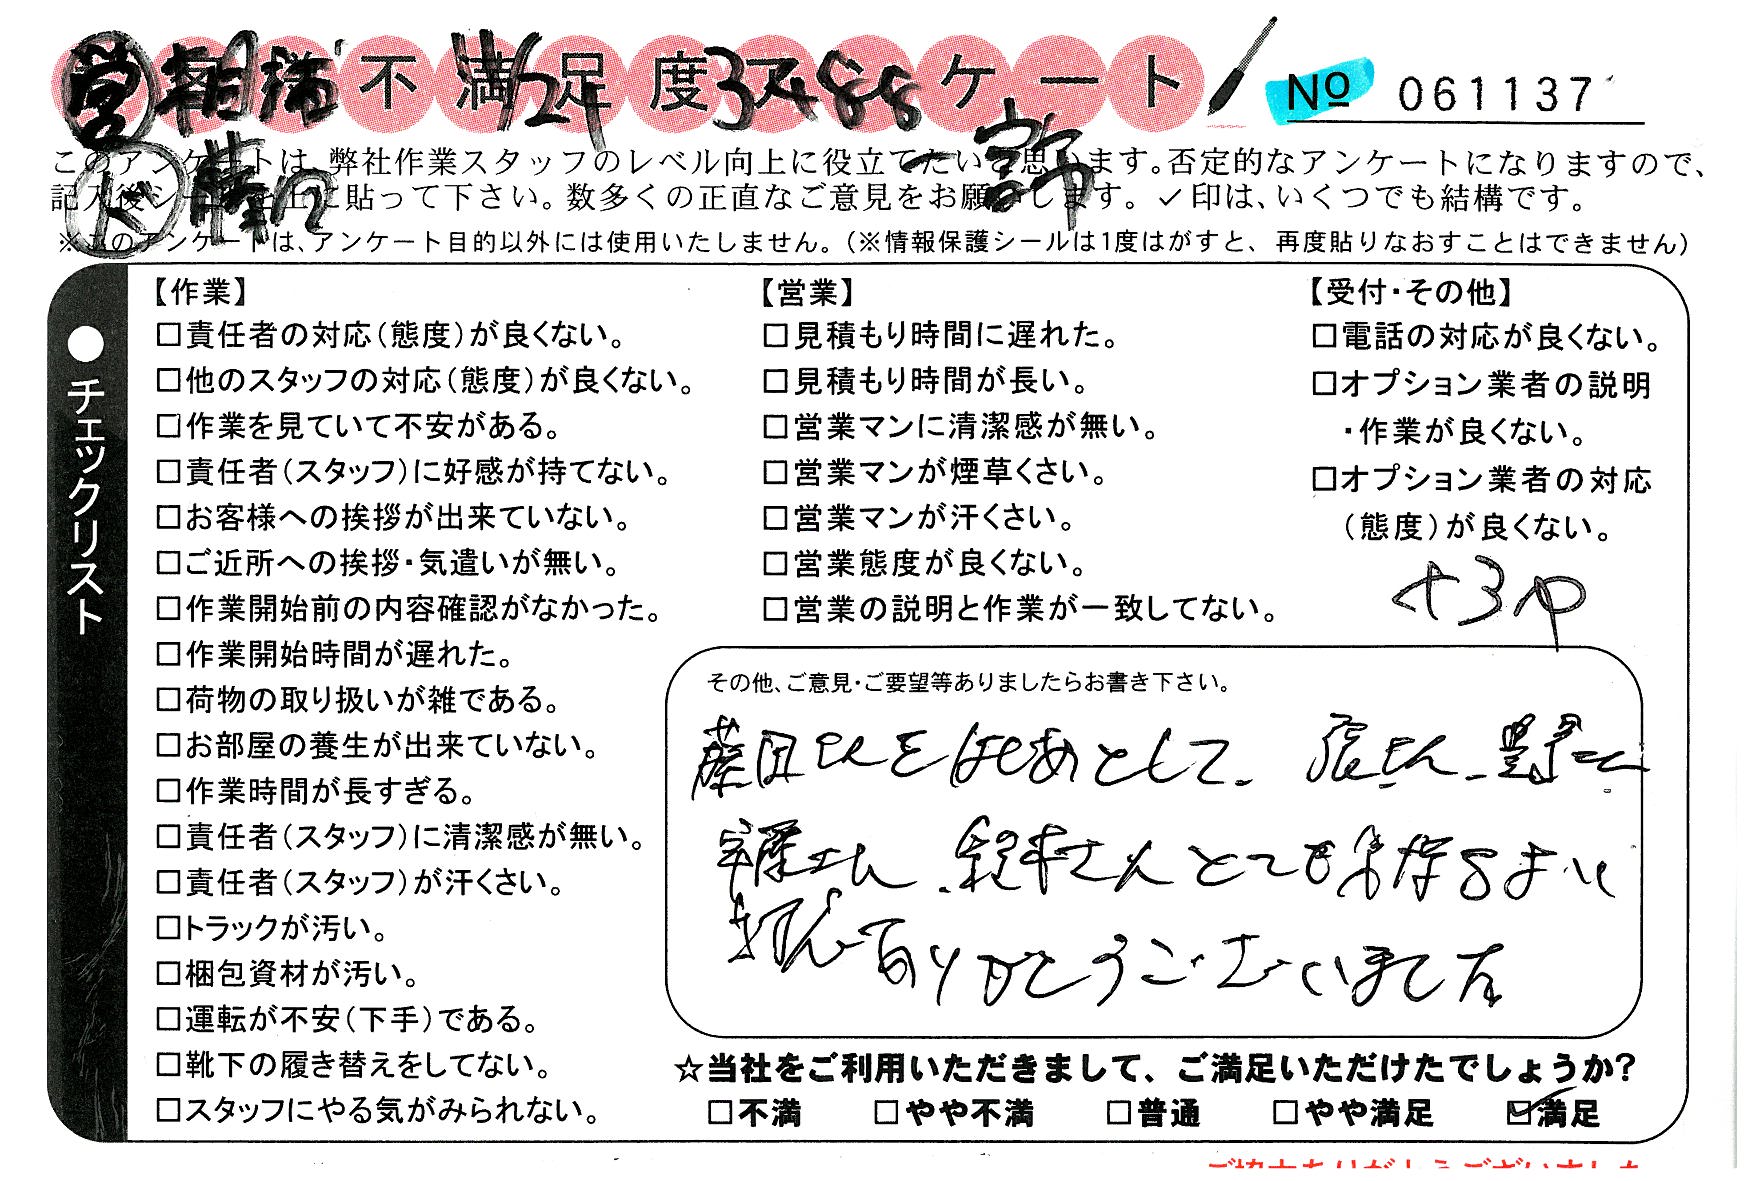 不満足度アンケート
No 061137
このアンケートは、弊社作業スタッフのレベル向上に役立てたいと思います。否定的なアンケートになりますので、
記入後シールを上に貼って下さい。数多くの正直なご意見をお願いします。✓印は、いくつでも結構です。
※このアンケートは、アンケート目的以外には使用いたしません。（※情報保護シールは1度はがすと、再度貼りなおすことはできません）
●チェックリスト
【作業】
□責任者の対応（態度）が良くない。
□他のスタッフの対応（態度）が良くない。
□作業を見ていて不安がある。
□責任者（スタッフ）に好感が持てない。
□お客様への挨拶が出来ていない。
□ご近所への挨拶・気遣いが無い。
□作業開始前の内容確認がなかった。
□作業開始時間が遅れた。
□荷物の取り扱いが雑である。
□お部屋の養生が出来ていない。
□作業時間が長すぎる。
□責任者（スタッフ）に清潔感が無い。
□責任者（スタッフ）が汗くさい。
□トラックが汚い。
□梱包資材が汚い。
□運転が不安（下手）である。
□靴下の履き替えをしてない。
□スタッフにやる気がみられない。
【営業】
□見積もり時間に遅れた。
□見積もり時間が長い。
□営業マンに清潔感が無い。
□営業マンが煙草くさい。
□営業マンが汗くさい。
□営業態度が良くない。
□営業の説明と作業が一致してない。
【受付・その他】
□電話の対応が良くない。
□オプション業者の説明
・作業が良くない。
□オプション業者の対応
（態度）が良くない。
+3
その他、ご意見・ご要望等ありましたらお書き下さい。
藤田さんをはじめとして、さん、
さん、鈴木さんとても
ありがとうございました
☆当社をご利用いただきまして、ご満足いただけたでしょうか？
□不満 □やや不満 □普通 □やや満足 ☑満足
ご協力ありがとうございました